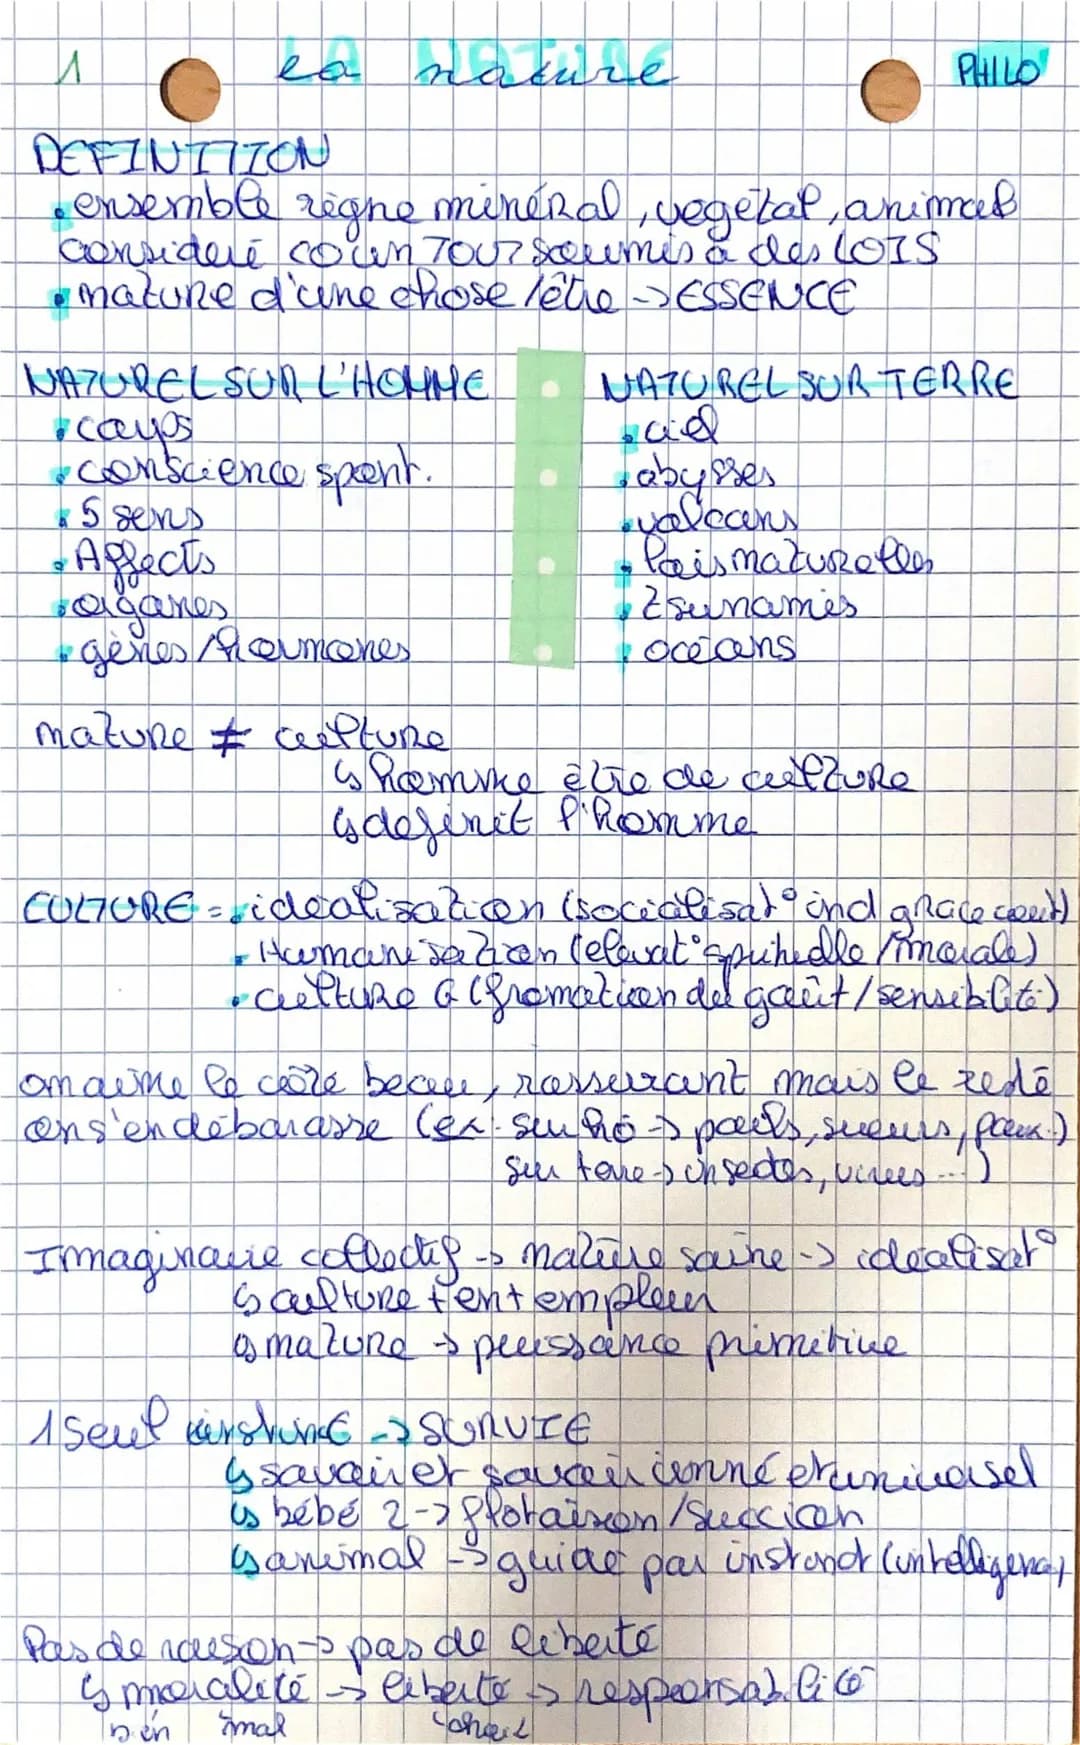 1 la nature PHILO
DEFINITION
• ensemble règne minéral, végétal, animal
considéré co un TOUT soumis à des LOIS
• nature d'une chose / être -> ESSENCE
NATUREL SUR L'HOMME
• corps
• conscience spont.
• 5 sens
• Affects
• organes
• gènes / hormones
NATUREL SUR TERRE
• ciel
• abysses
• volcans
• lois naturelles
• tsunamies
• océans
nature ≠ culture
↳ homme être de culture
↳ definit l'homme
CULTURE = • idéalisation (socialisat° ind grace cout)
• Humanisation (elevat° spirituelle / morale)
• culture G (fromation du goût / sensibilité)
on aime le côté beau, rassurant mais le reste
on s'en débarasse (ex: sur ho -> poils, sueurs, poux..)
sur terre -> insectes, virus ...)
Imaginaire collectif -> nature saine -> idéalisat°
↳ culture + ent empleur
↳ nature -> puissance primitive
1 seul instinct -> SURVIE
↳ savoir et savoir inné et universel
↳ bébé 2 -> flotaison / succion
↳ animal -> guidé par instinct (intelligence)
Pas de raison -> pas de liberté
↳ moralité -> liberté -> responsabilité
bien mal choix